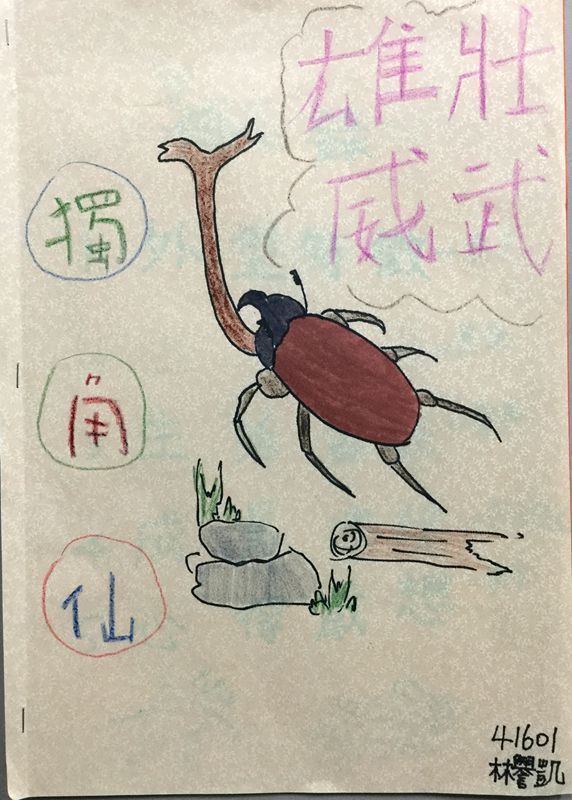 雄壯
威武
獨角仙
41601
林譽凱